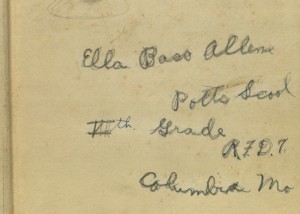 Ella Bass Allene
Potts Scool
VIth Grade
R.F.D.7.
Columbia Mo